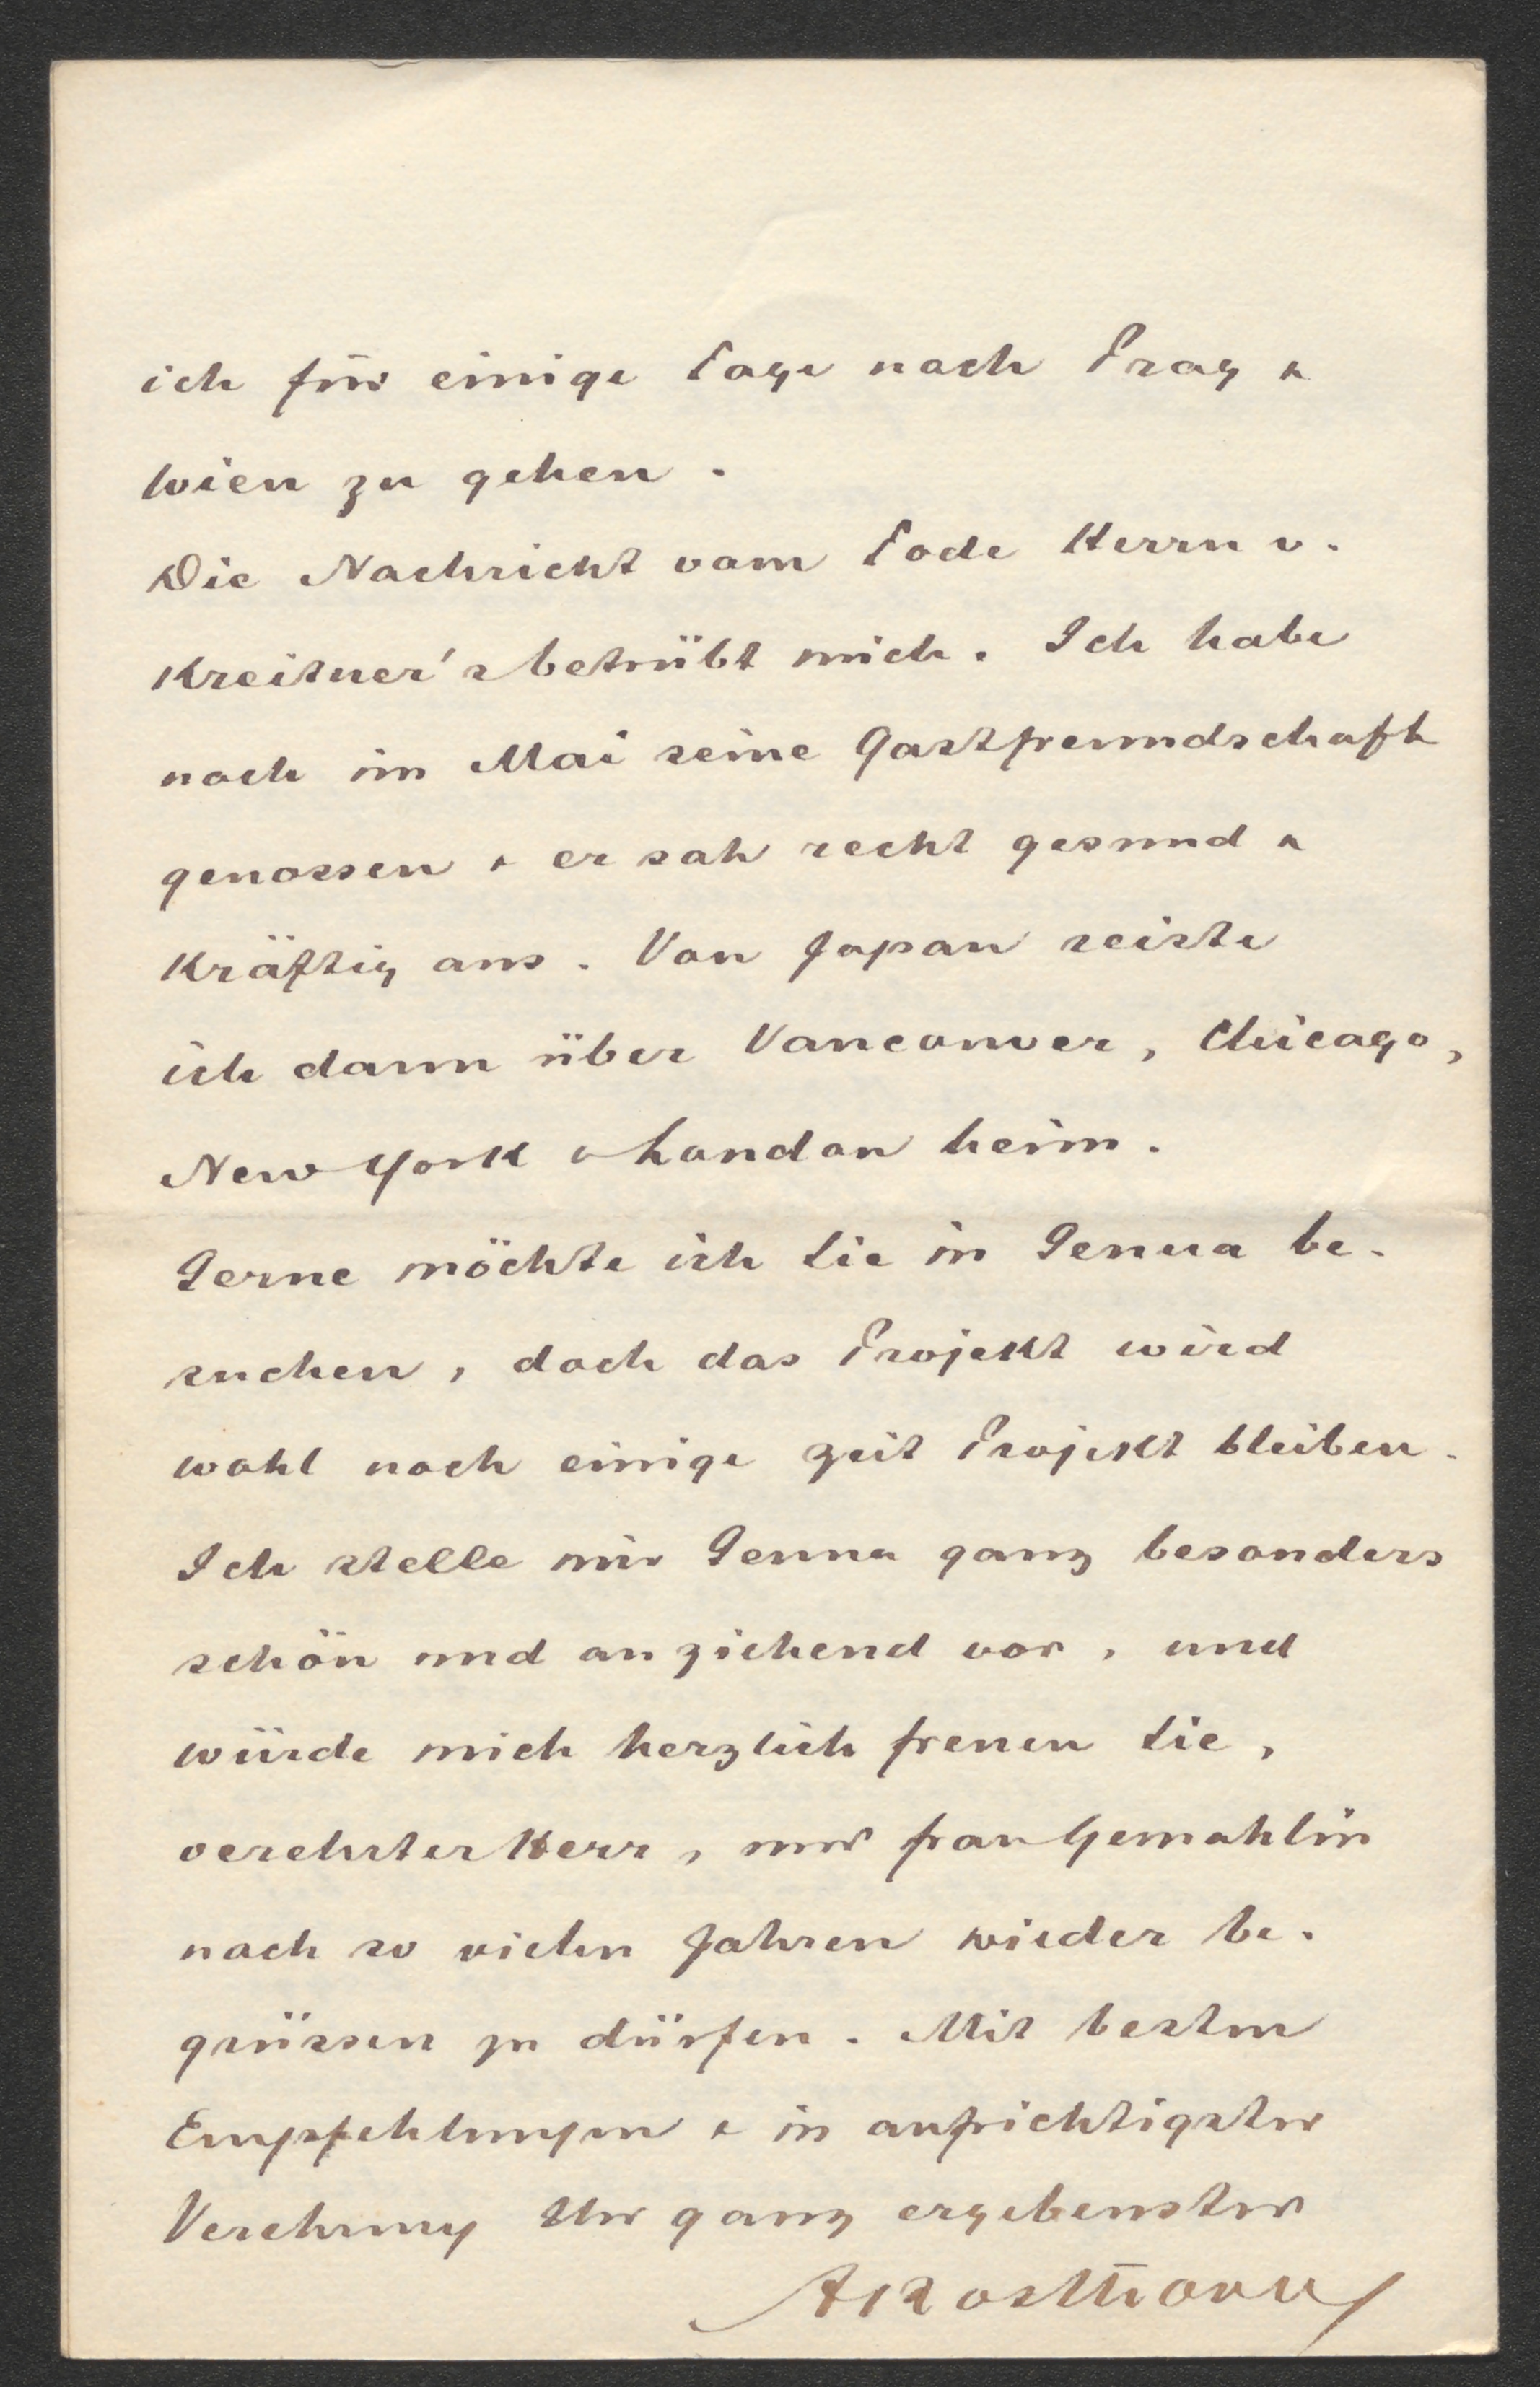 ich für einige Tage nach Prag &
Wien zu gehen.
Die Nachricht vom Tode Herrn v.
Kreitner's betrübt mich. Ich habe
noch im Mai seine Gastfreundschaft
genossen & er sah recht gesund &
kräftig aus. Von Japan reiste
ich dann über Vancouver, Chicago,
New York & London heim.
Gerne möchte ich Sie in Genua be-
suchen, doch das Projekt wird
wohl noch einige Zeit Projekt bleiben.
Ich stelle mir Genua ganz besonders
schön und anziehend vor, und
würde mich herzlich freuen Sie,
verehrter Herr, und Frau Gemahlin
nach so vielen Jahren wieder be-
grüssen zu dürfen. Mit besten
Empfehlungen & in aufrichtigster
Verehrung Ihr ganz ergebenster
ARosthorn